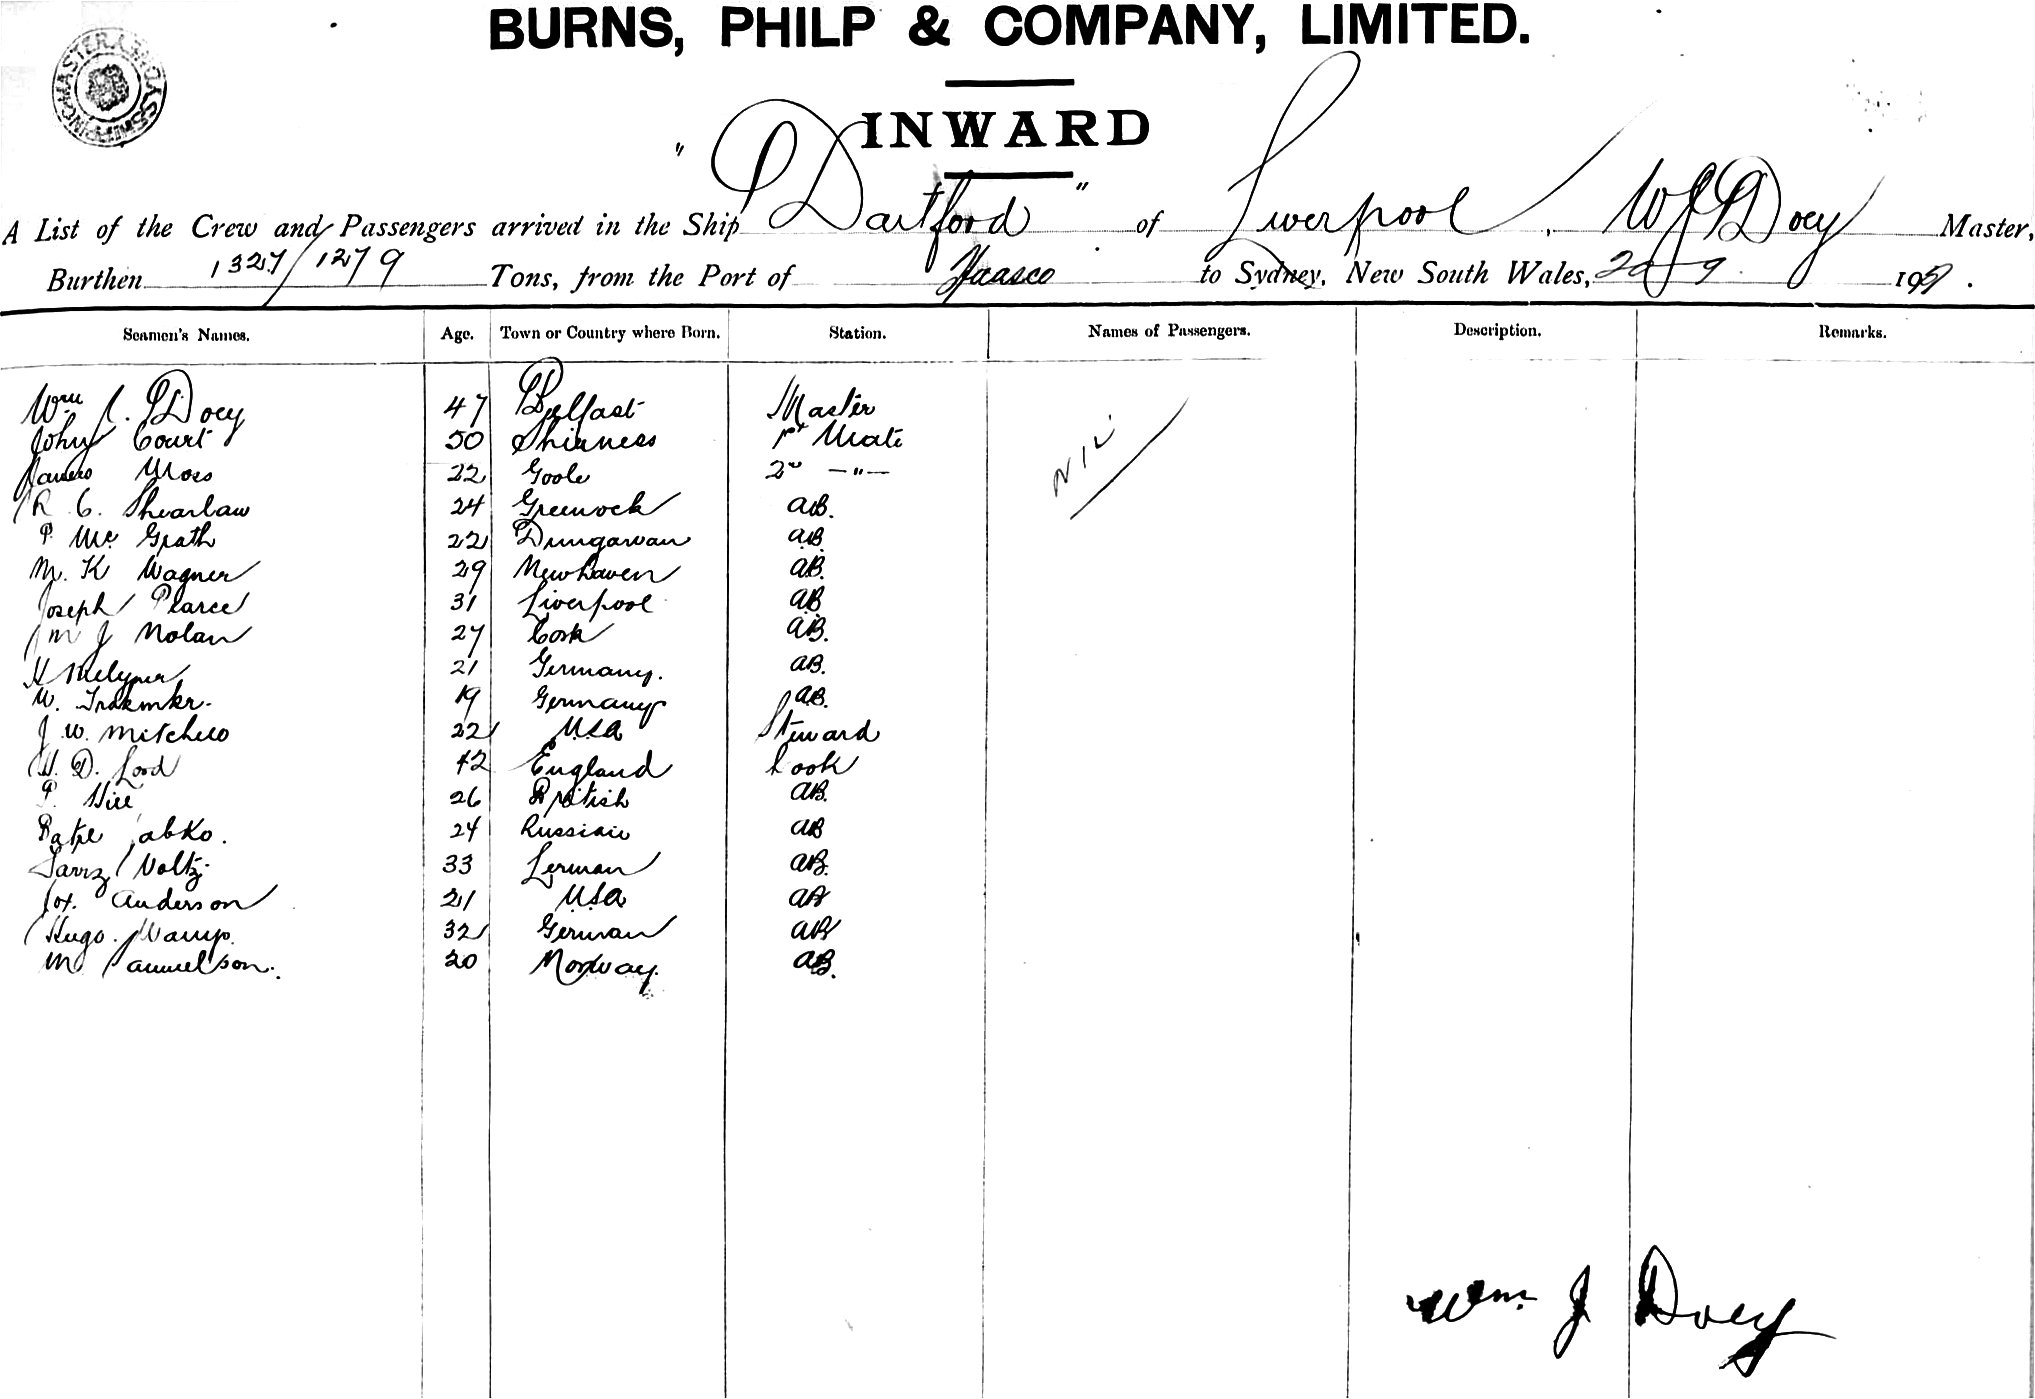 BURNS, PHILP & COMPANY, LIMITED.
INWARD
A List of the Crew and Passengers arrived in the Ship "Dartford" of Liverpool, W J Doey Master,
Burthen 1327/1279 Tons, from the Port of Huasco to Sydney, New South Wales, 9 190
Seamen's Names. Age. Town or Country where Born. Station. Names of Passengers. Description. Remarks.
Wm J. Doey 47 Belfast Master
NIL
John Court 50 Shirness 1st Mate
James Moss 22 Goole 2nd —"—
R C. Shearlaw 24 Greenock AB.
P. Mc Grath 22 Dungarvan AB.
M. K Wagner 29 Newhaven AB.
Joseph Pearce 31 Liverpool AB
M J Nolan 27 Cork AB.
H 21 Germany. AB.
W. 19 Germany AB.
J. W. Mitchell 22 USA Steward
H. D. Lord 42 England Cook
P. Hill 26 British AB.
24 Russian AB
Voltz 33 German AB.
Anderson 21 USA AB
Hugo 32 German AB
M Samuelson. 20 Norway. AB.
Wm J Doey